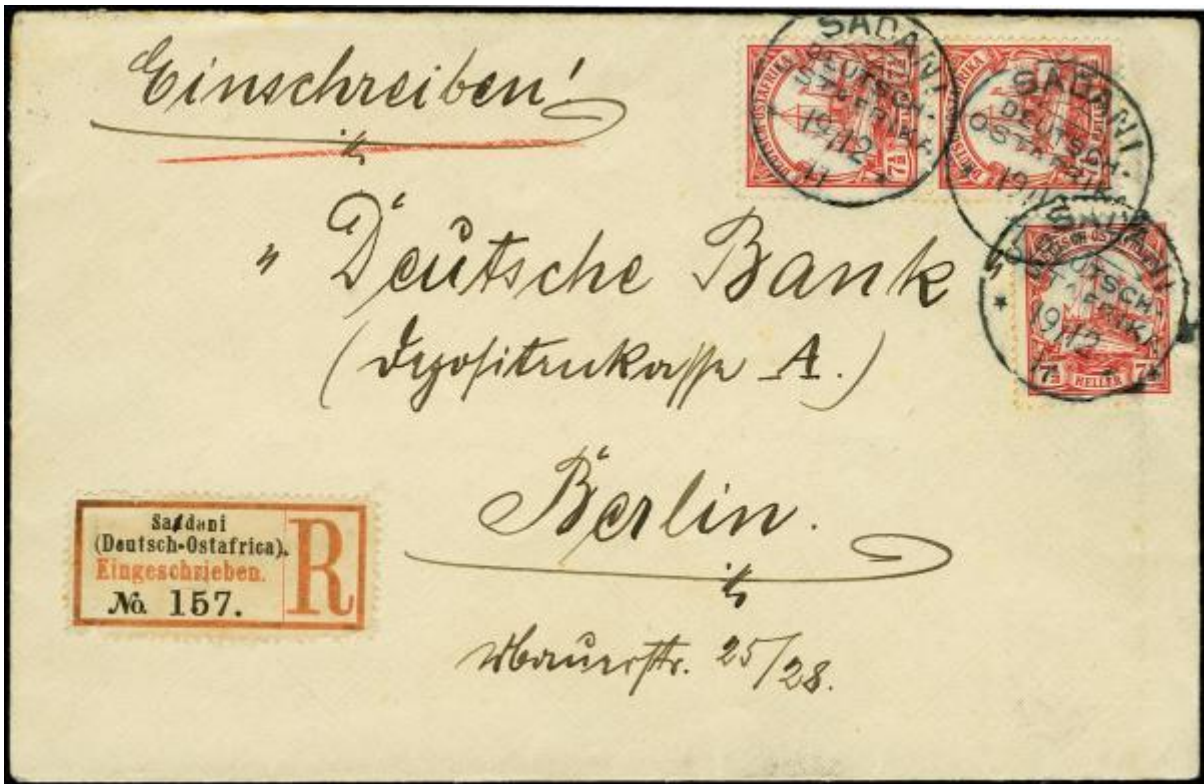 Einschreiben!
SADANI
DEUTSCH-
OSTAFRIKA
19/12
11
SADANI
DEUTSCH-
OSTAFRIKA
19/12
SADANI
DEUTSCH-
OSTAFRIKA
19/12
11
DEUTSCH-OSTAFRIKA
7½
DEUTSCH-OSTAFRIKA
7½ HELLER 7½
" Deutsche Bank
(Depositenkasse A.)
Berlin.
Mauerstr. 25/28.
Saadani
(Deutsch-Ostafrica).
Eingeschrieben.
No. 157.
R